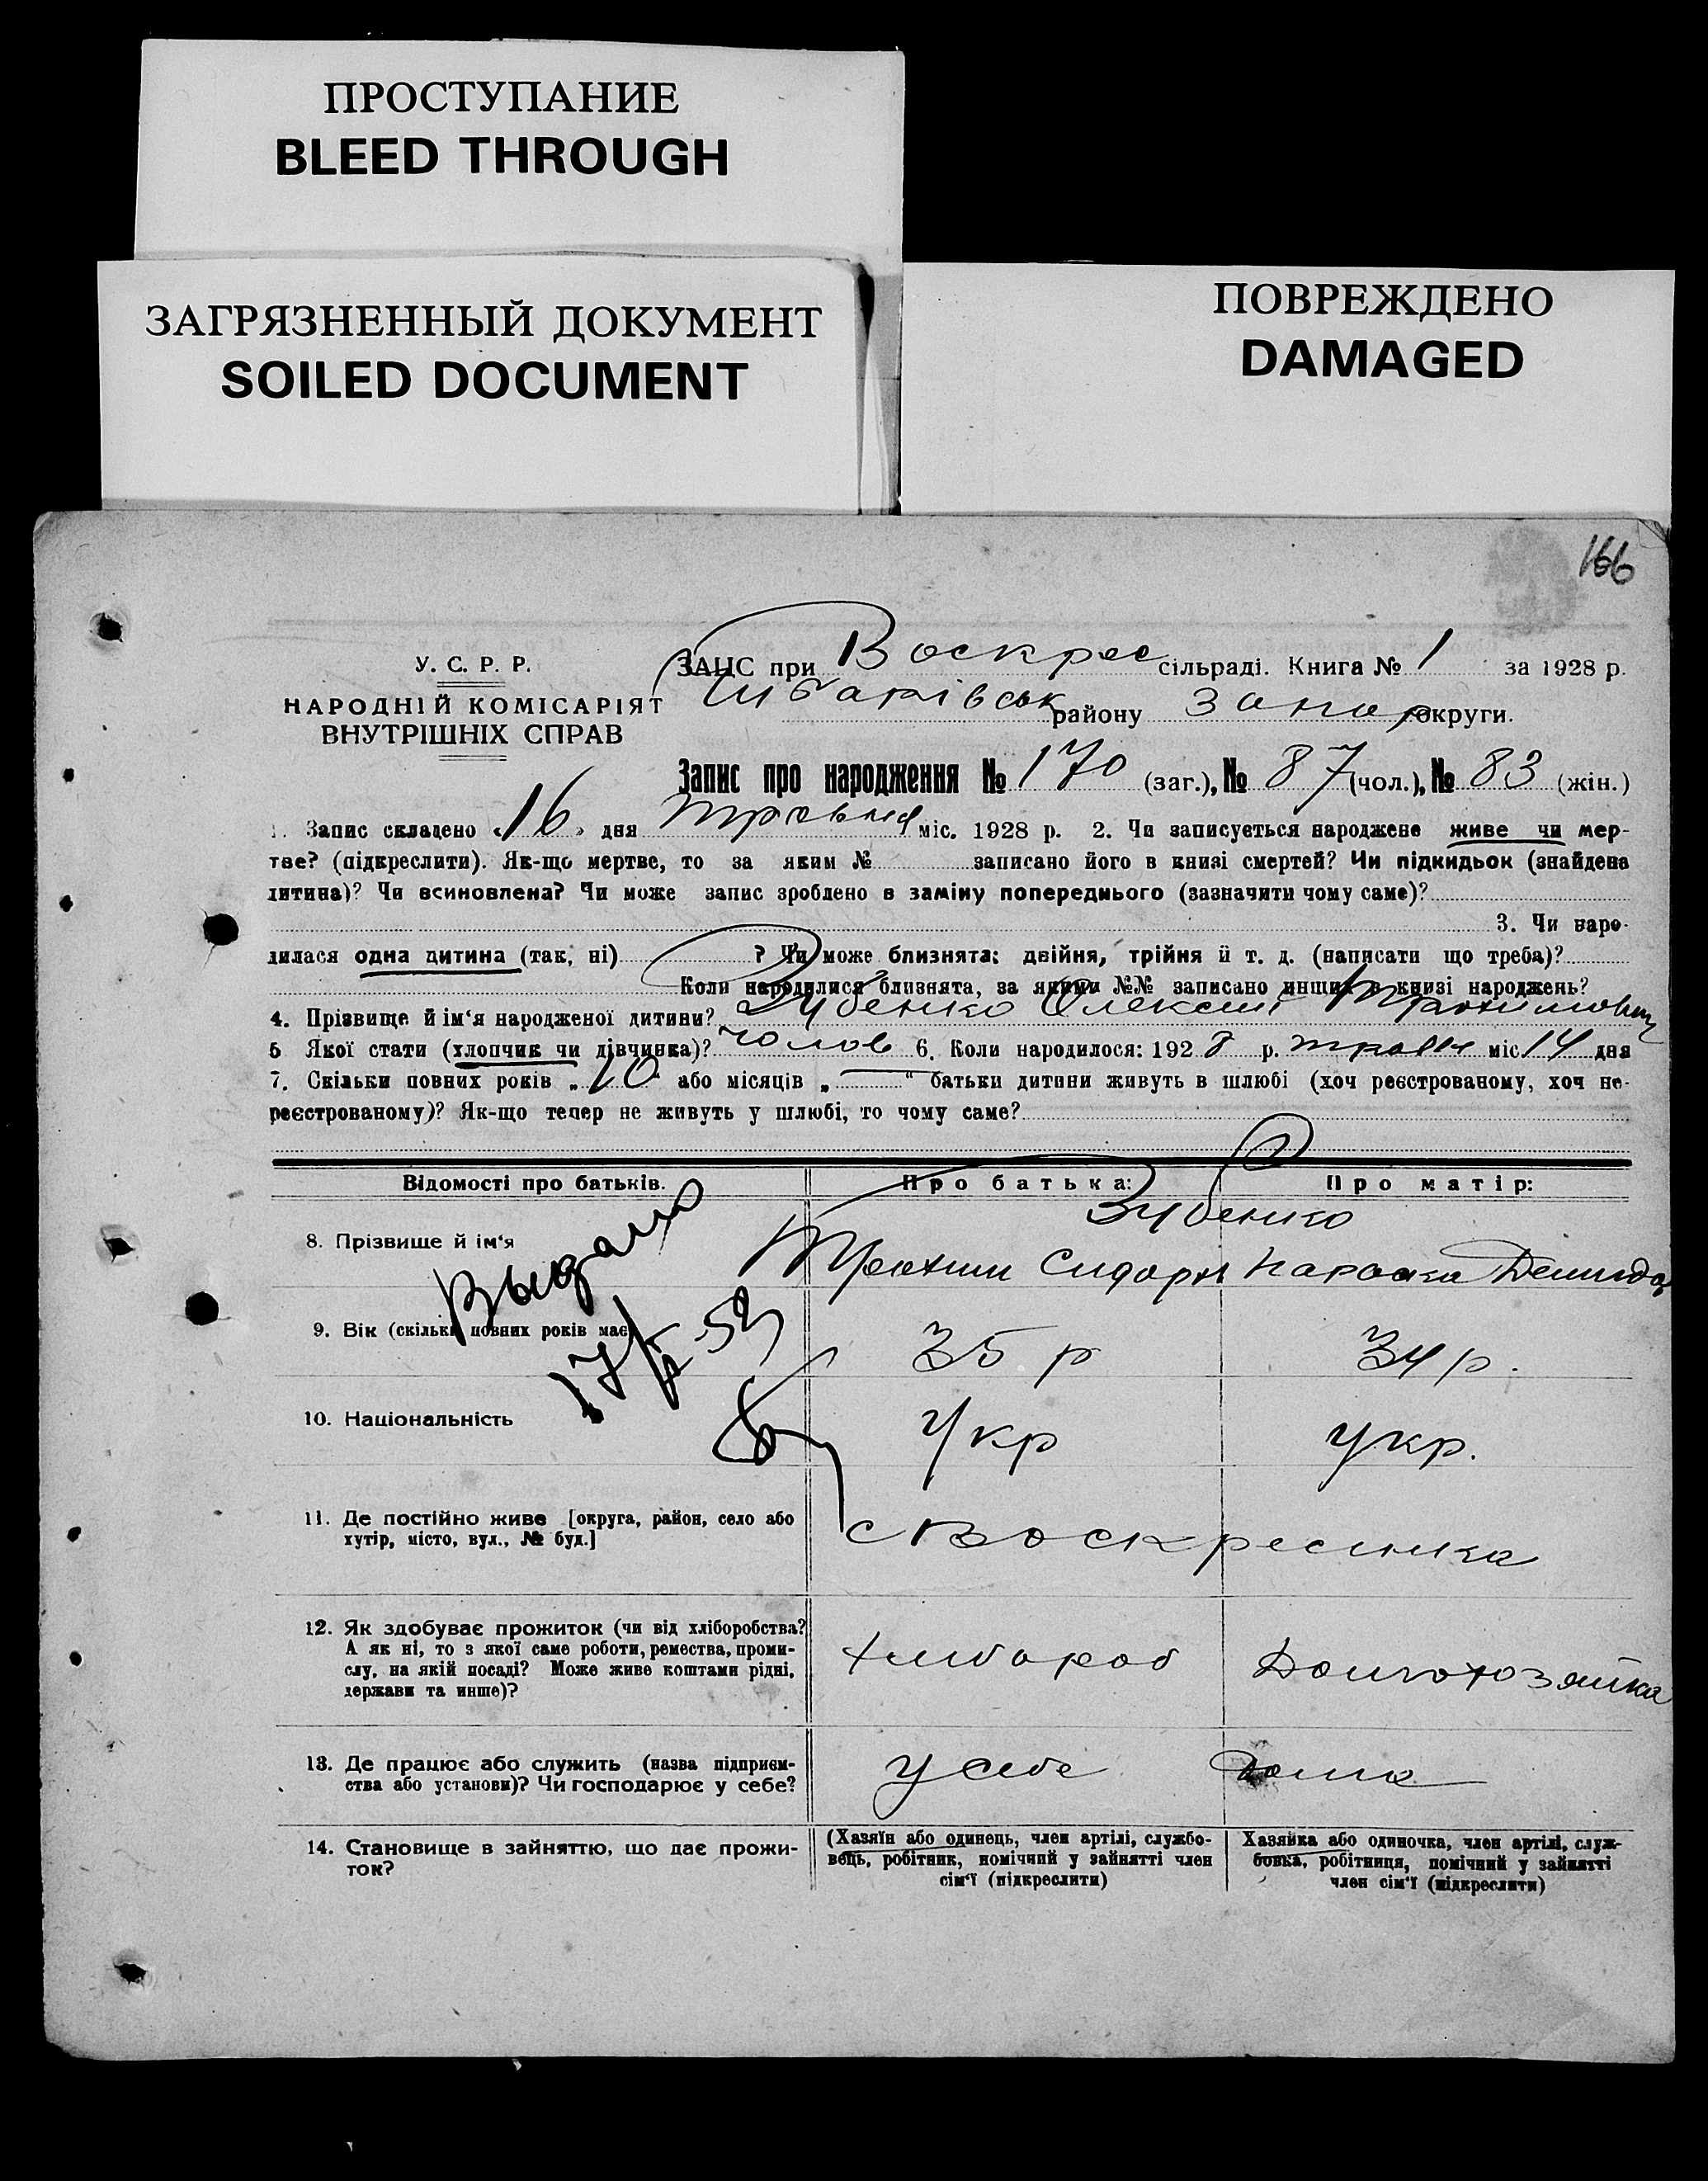 ПРОСТУПАНИЕ
BLEED THROUGH
ЗАГРЯЗНЕННЫЙ ДОКУМЕНТ
SOILED DOCUMENT
ПОВРЕЖДЕНО
DAMAGED
166
У. С. Р. Р.
НАРОДНІЙ КОМІСАРІЯТ
ВНУТРІШНІХ СПРАВ
ЗАНС при Воскрес сільраді. Книга № 1 за 1928 р.
району Запор округи.
Запис про народження № 170 (заг.), № 87 (чол.), № 83 (жін.)
1. Запис складено « 16 » дня травня міс. 1928 р. 2. Чи записується народжене живе чи мер-
тве? (підкреслити). Як-що мертве, то за яким № записано його в книзі смертей? Чи підкидьок (знайдена
дитина)? Чи всиновлена? Чи може запис зроблено в заміну попереднього (зазначити чому саме)?
3. Чи наро-
дилася одна дитина (так, ні) ? Чи може близнята: двійня, трійня й т. д. (написати що треба)?
Коли народилися близнята, за якими №№ записано инших в книзі народжень?
4. Прізвище й ім‘я народженої дитини? Зубенко Олексій Трохимович
5 Якої стати (хлопчик чи дівчинка)? чолов 6. Коли народилося: 1928 р. травня міс 14 дня
7. Скільки повних років „ 10 “ або місяців „ “ батьки дитини живуть в шлюбі (хоч реєстрованому, хоч не-
реєстрованому)? Як-що тепер не живуть у шлюбі, то чому саме?
Відомості про батьків. Про батька: Про матір:
Зубенко
8. Прізвище й ім‘я Трохим Сидоров Параска Демидов
Выдано
9. Вік (скільки повних років має) 35 р 34 р.
10. Національність Укр Укр.
11. Де постійно живе [округа, район, село або
хутір, місто, вул., № буд.] с Воскресенка
12. Як здобуває прожиток (чи від хліборобства?
А як ні, то з якої саме роботи, ремества, проми-
слу, на якій посаді? Може живе коштами рідні,
держави та инше)?
хлибороб Домохозяйка
13. Де працює або служить (назва підприєм-
ства або установи)? Чи господарює у себе?
у себе дома
14. Становище в зайняттю, що дає прожи-
ток?
(Хазяїн або одинець, член артілі, службо-
вець, робітник, помічний у зайнятті член
сім‘ї (підкреслити)
Хазяйка або одиночка, член артілі, служ-
бовка, робітниця, помічний у зайнятті
член сім‘ї (підкреслити)